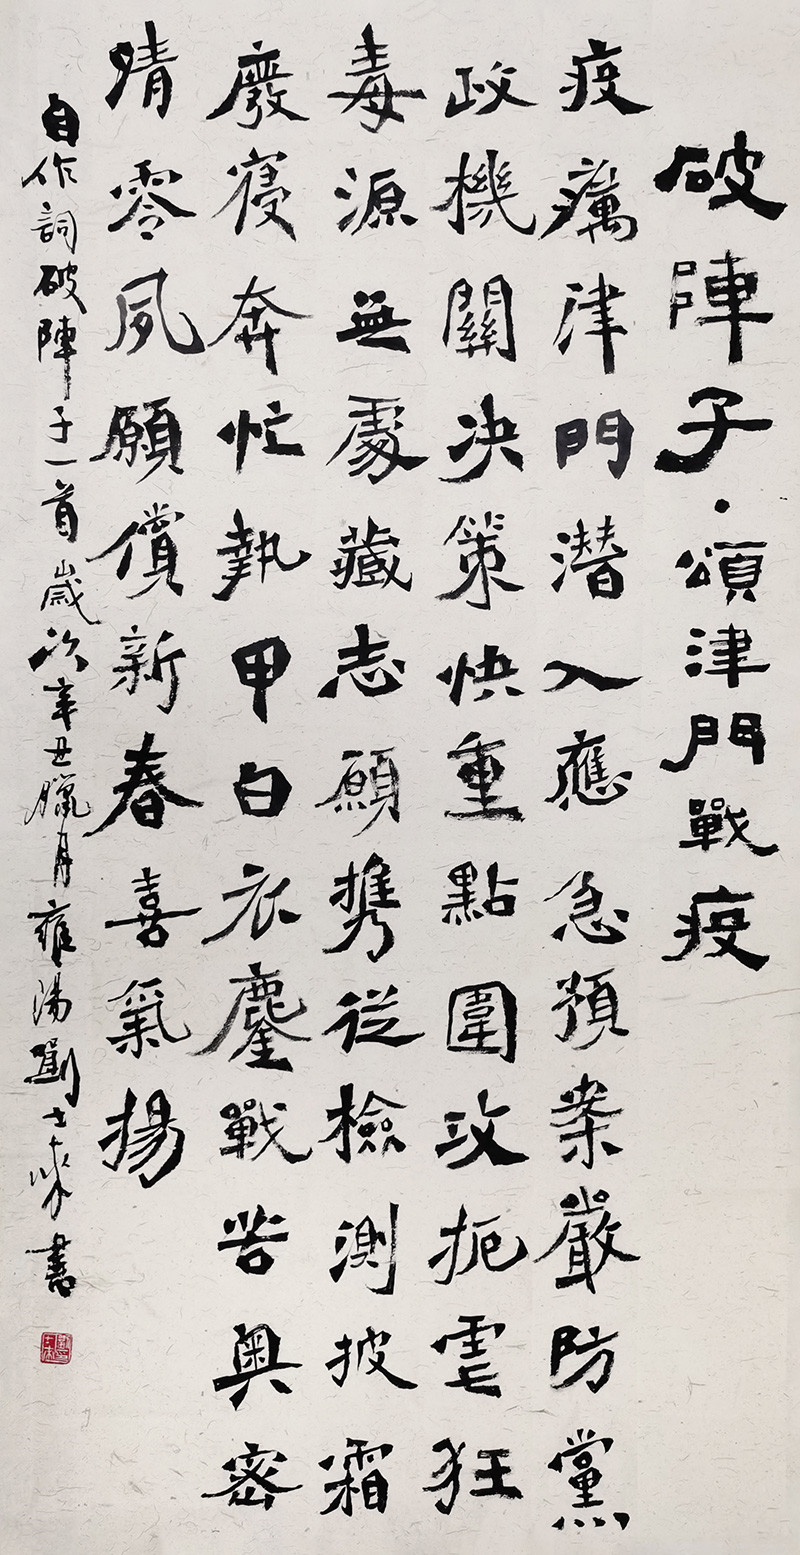 破陣子·頌津門戰疫
疫癘津門潛入應急預案嚴防黨
政機關决策快重點圍攻扼狂
毒源無處藏志願携從檢測披霜
廢寢奔忙執甲白衣鏖戰苦奧密
清零夙願償新春喜氣揚
自作詞破陣子一首歲次辛丑臘月雍陽劉士來書